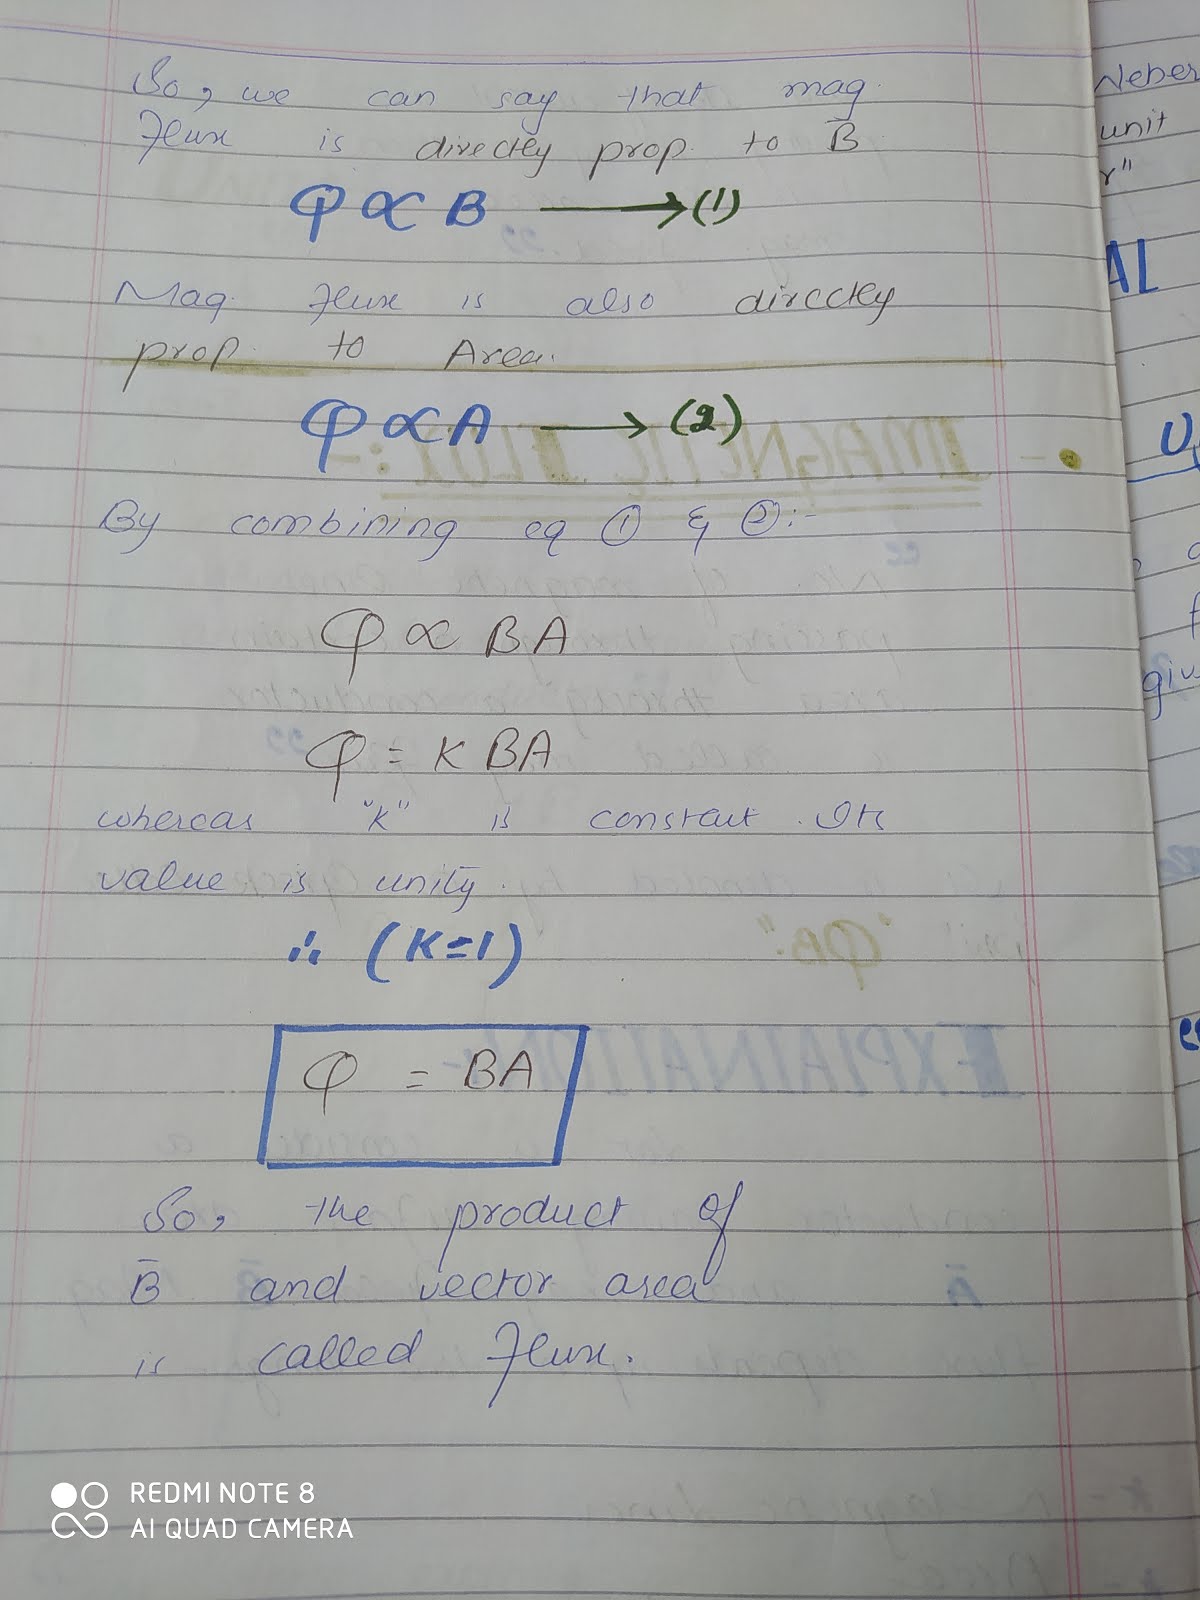 So, we can say that mag.
Flux is directly prop. to B̄
φ ∝ B ⟶(1)
Mag. Flux is also directly
prop. to Area.
φ ∝ A ⟶ (2)
By combining eq ① & ②:-
φ ∝ BA
φ = K BA
whereas "K" is constant. Its
value is unity.
∴ (K=1)
φ = BA
So, the product of
B̄ and vector area
is called Flux.
Neber
unit
r"
AL
giv
REDMI NOTE 8
AI QUAD CAMERA